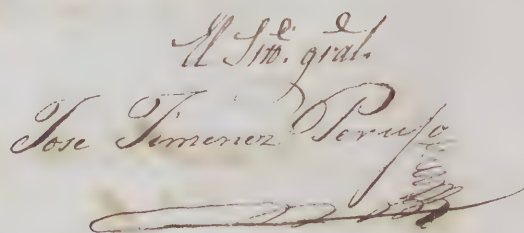 El Srio. gral.
Jose Jimenez Perujo